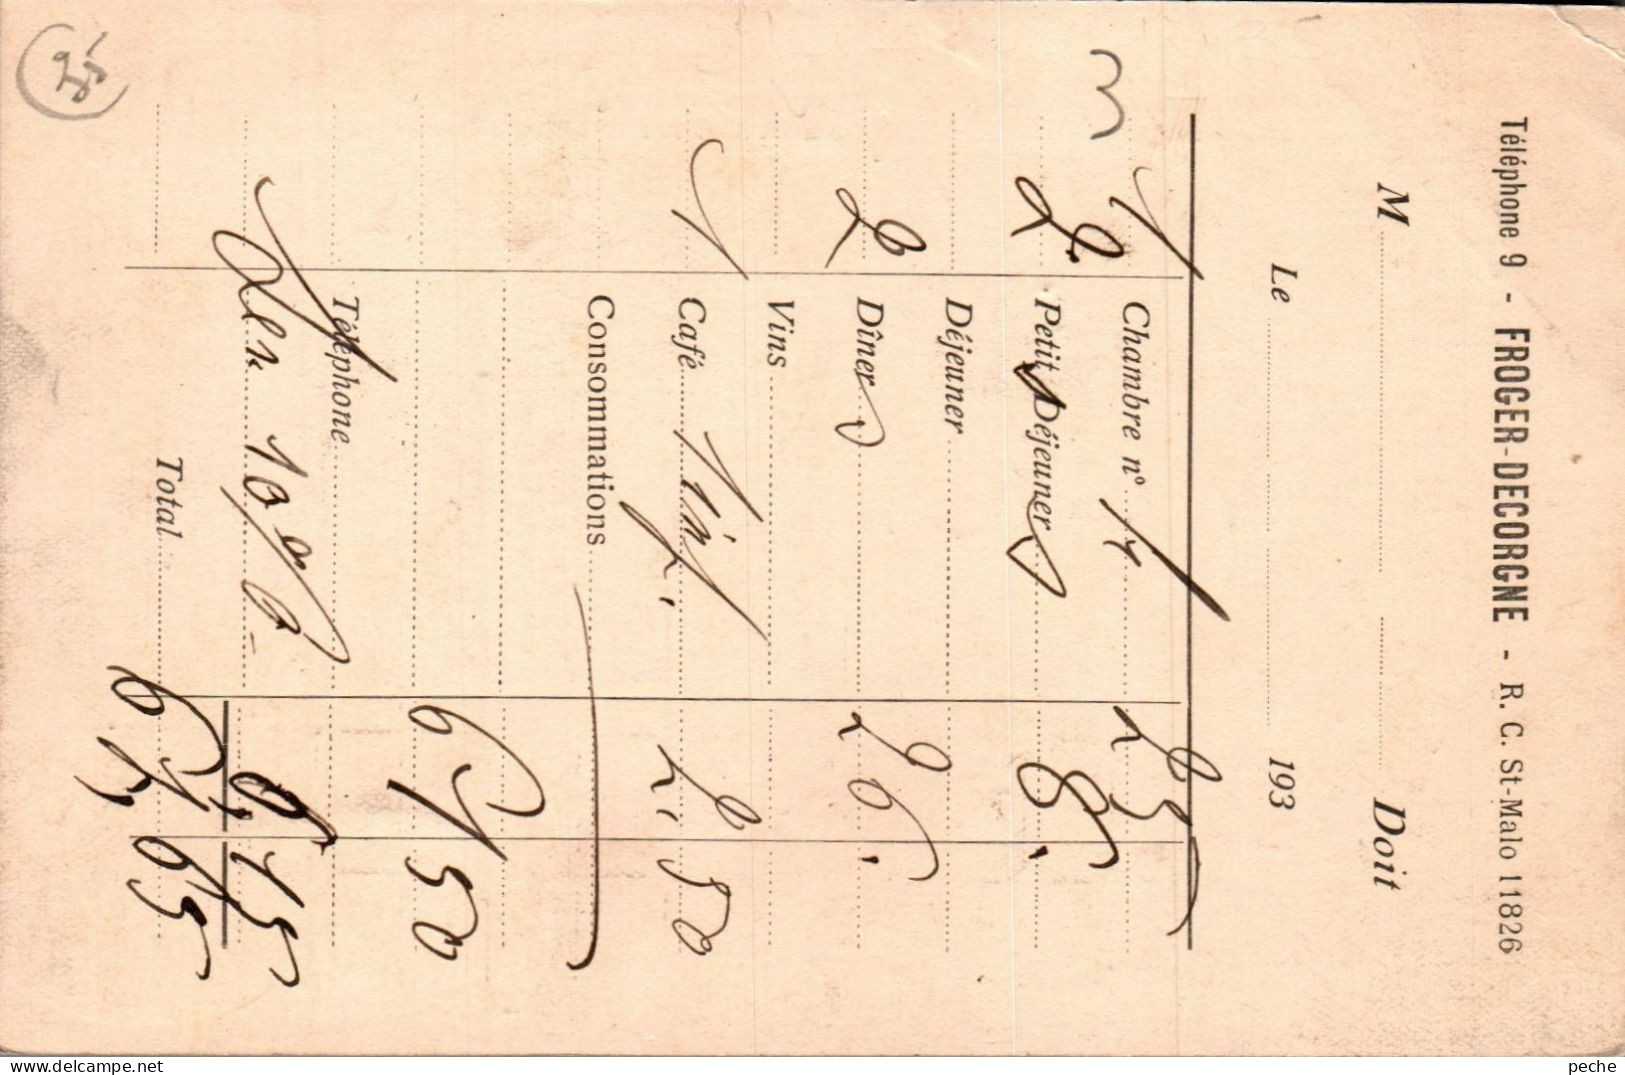 Téléphone 9 - FROGER-DECORGNE - R. C. St-Malo 11826
M Doit
Le 193
3
1 Chambre nº 14 25
2 Petit Déjeuner 8,
Déjeuner
2 Dîner 26,
Vins
1 Café 2.50
Consommations
61 50
Téléphone
10 % 6,15
Total 67,65
25
peche